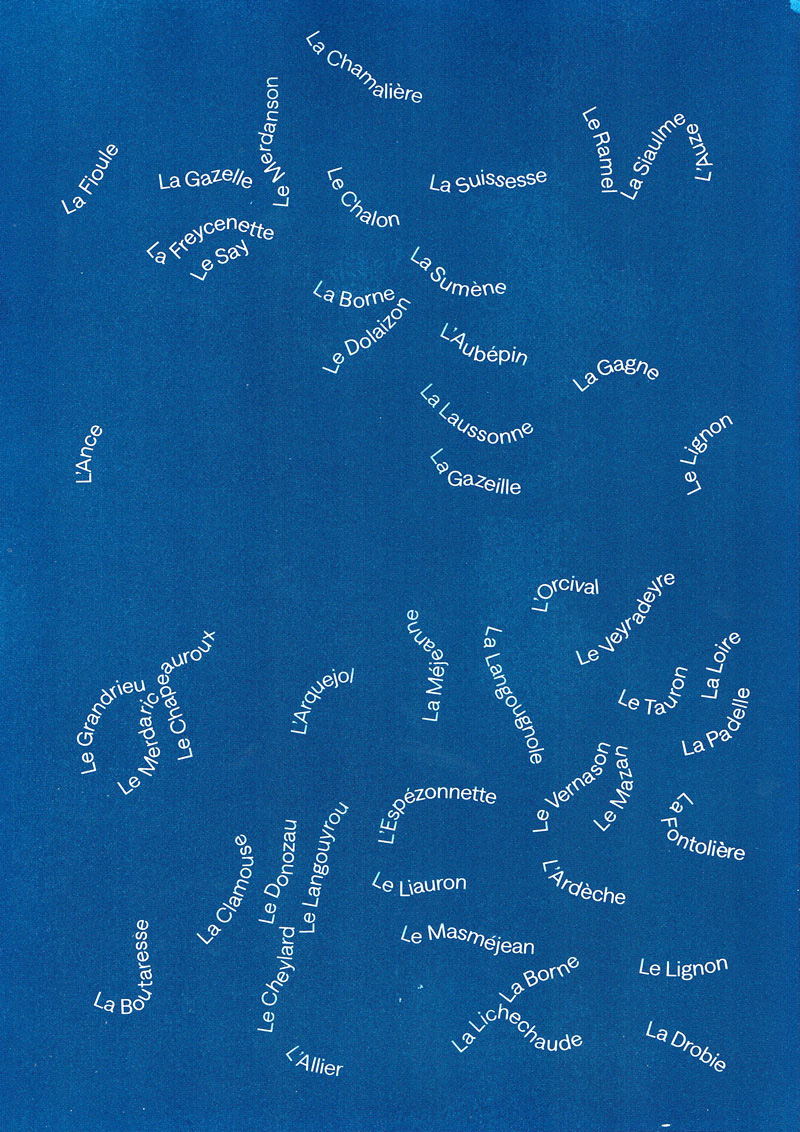 La Chamalière
Le Merdanson
La Fioule
La Gazelle
Le Chalon
La Suissesse
Le Ramel
La Siaulme
L'Auze
La Freycenette
Le Say
La Sumène
La Borne
Le Dolaizon
L'Aubépin
La Gagne
La Laussonne
L'Ance
La Gazeille
Le Lignon
L'Orcival
Le Veyradeyre
Le Grandrieu
Le Merdaric
Le Chapeauroux
L'Arquejol
La Méjeanne
La Langougnole
Le Tauron
La Loire
La Padelle
L'Espézonnette
Le Vernason
Le Mazan
La Fontolière
La Clamouse
Le Donozau
Le Langouyrou
Le Liauron
L'Ardèche
La Boutaresse
Le Cheylard
Le Masméjean
La Borne
Le Lignon
La Lichechaude
La Drobie
L'Allier